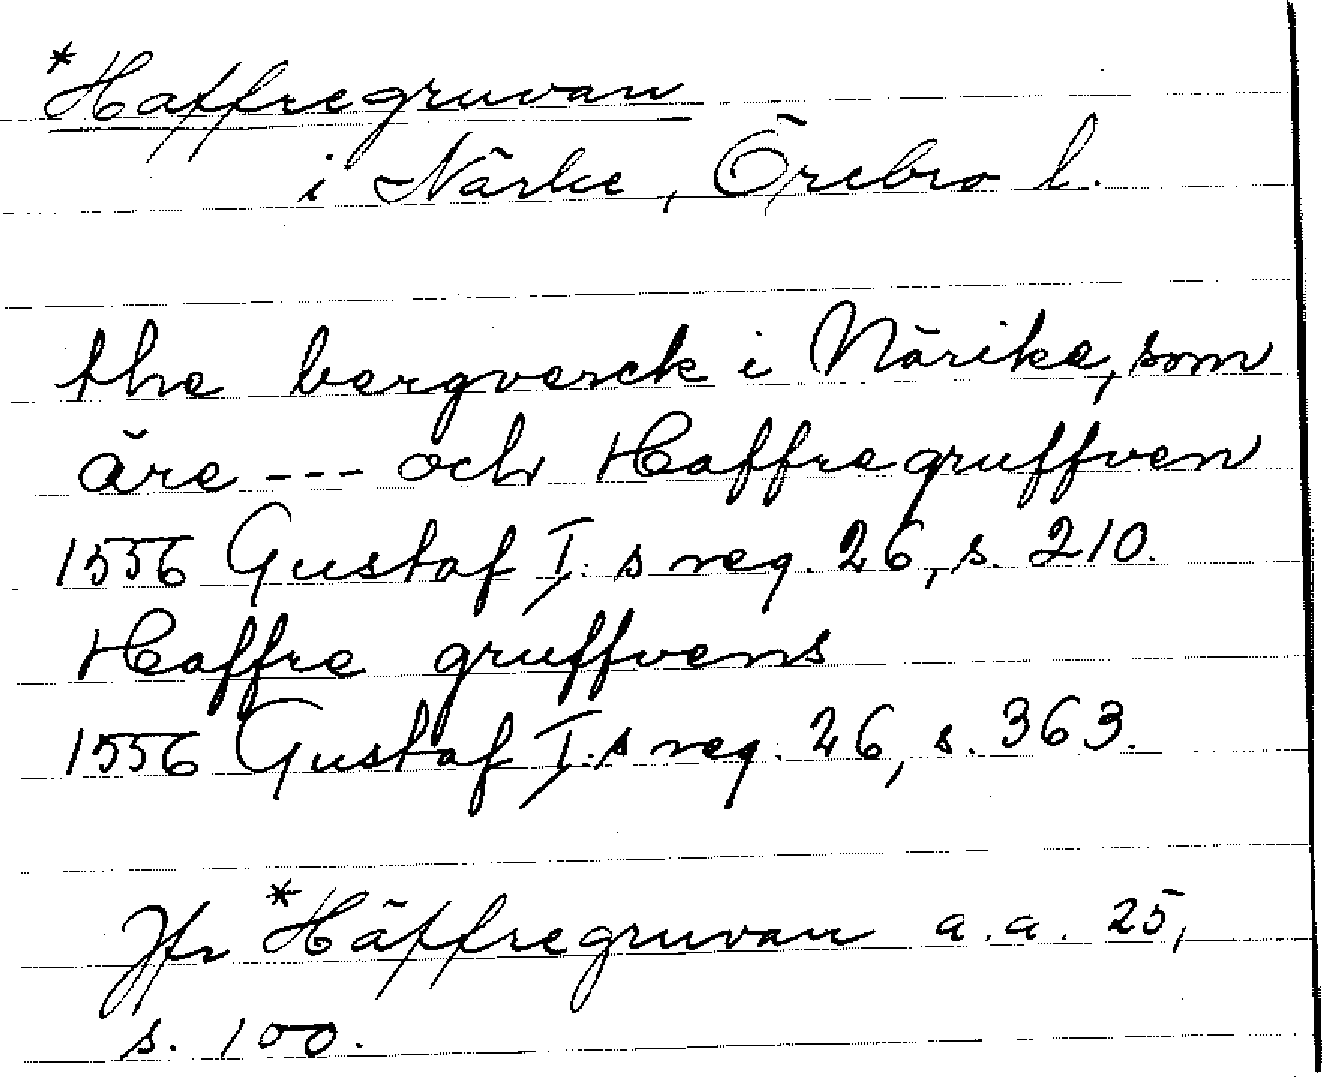 *Haffregruvan
i Närke, Örebro l.
the bergverck i Närike, som
äre --- och Haffregruffven
1556 Gustaf I:s reg. 26, s. 210.
Haffre gruffvens
1556 Gustaf I:s reg. 26, s. 363.
Jfr *Häffregruvan a.a. 25,
s. 100.